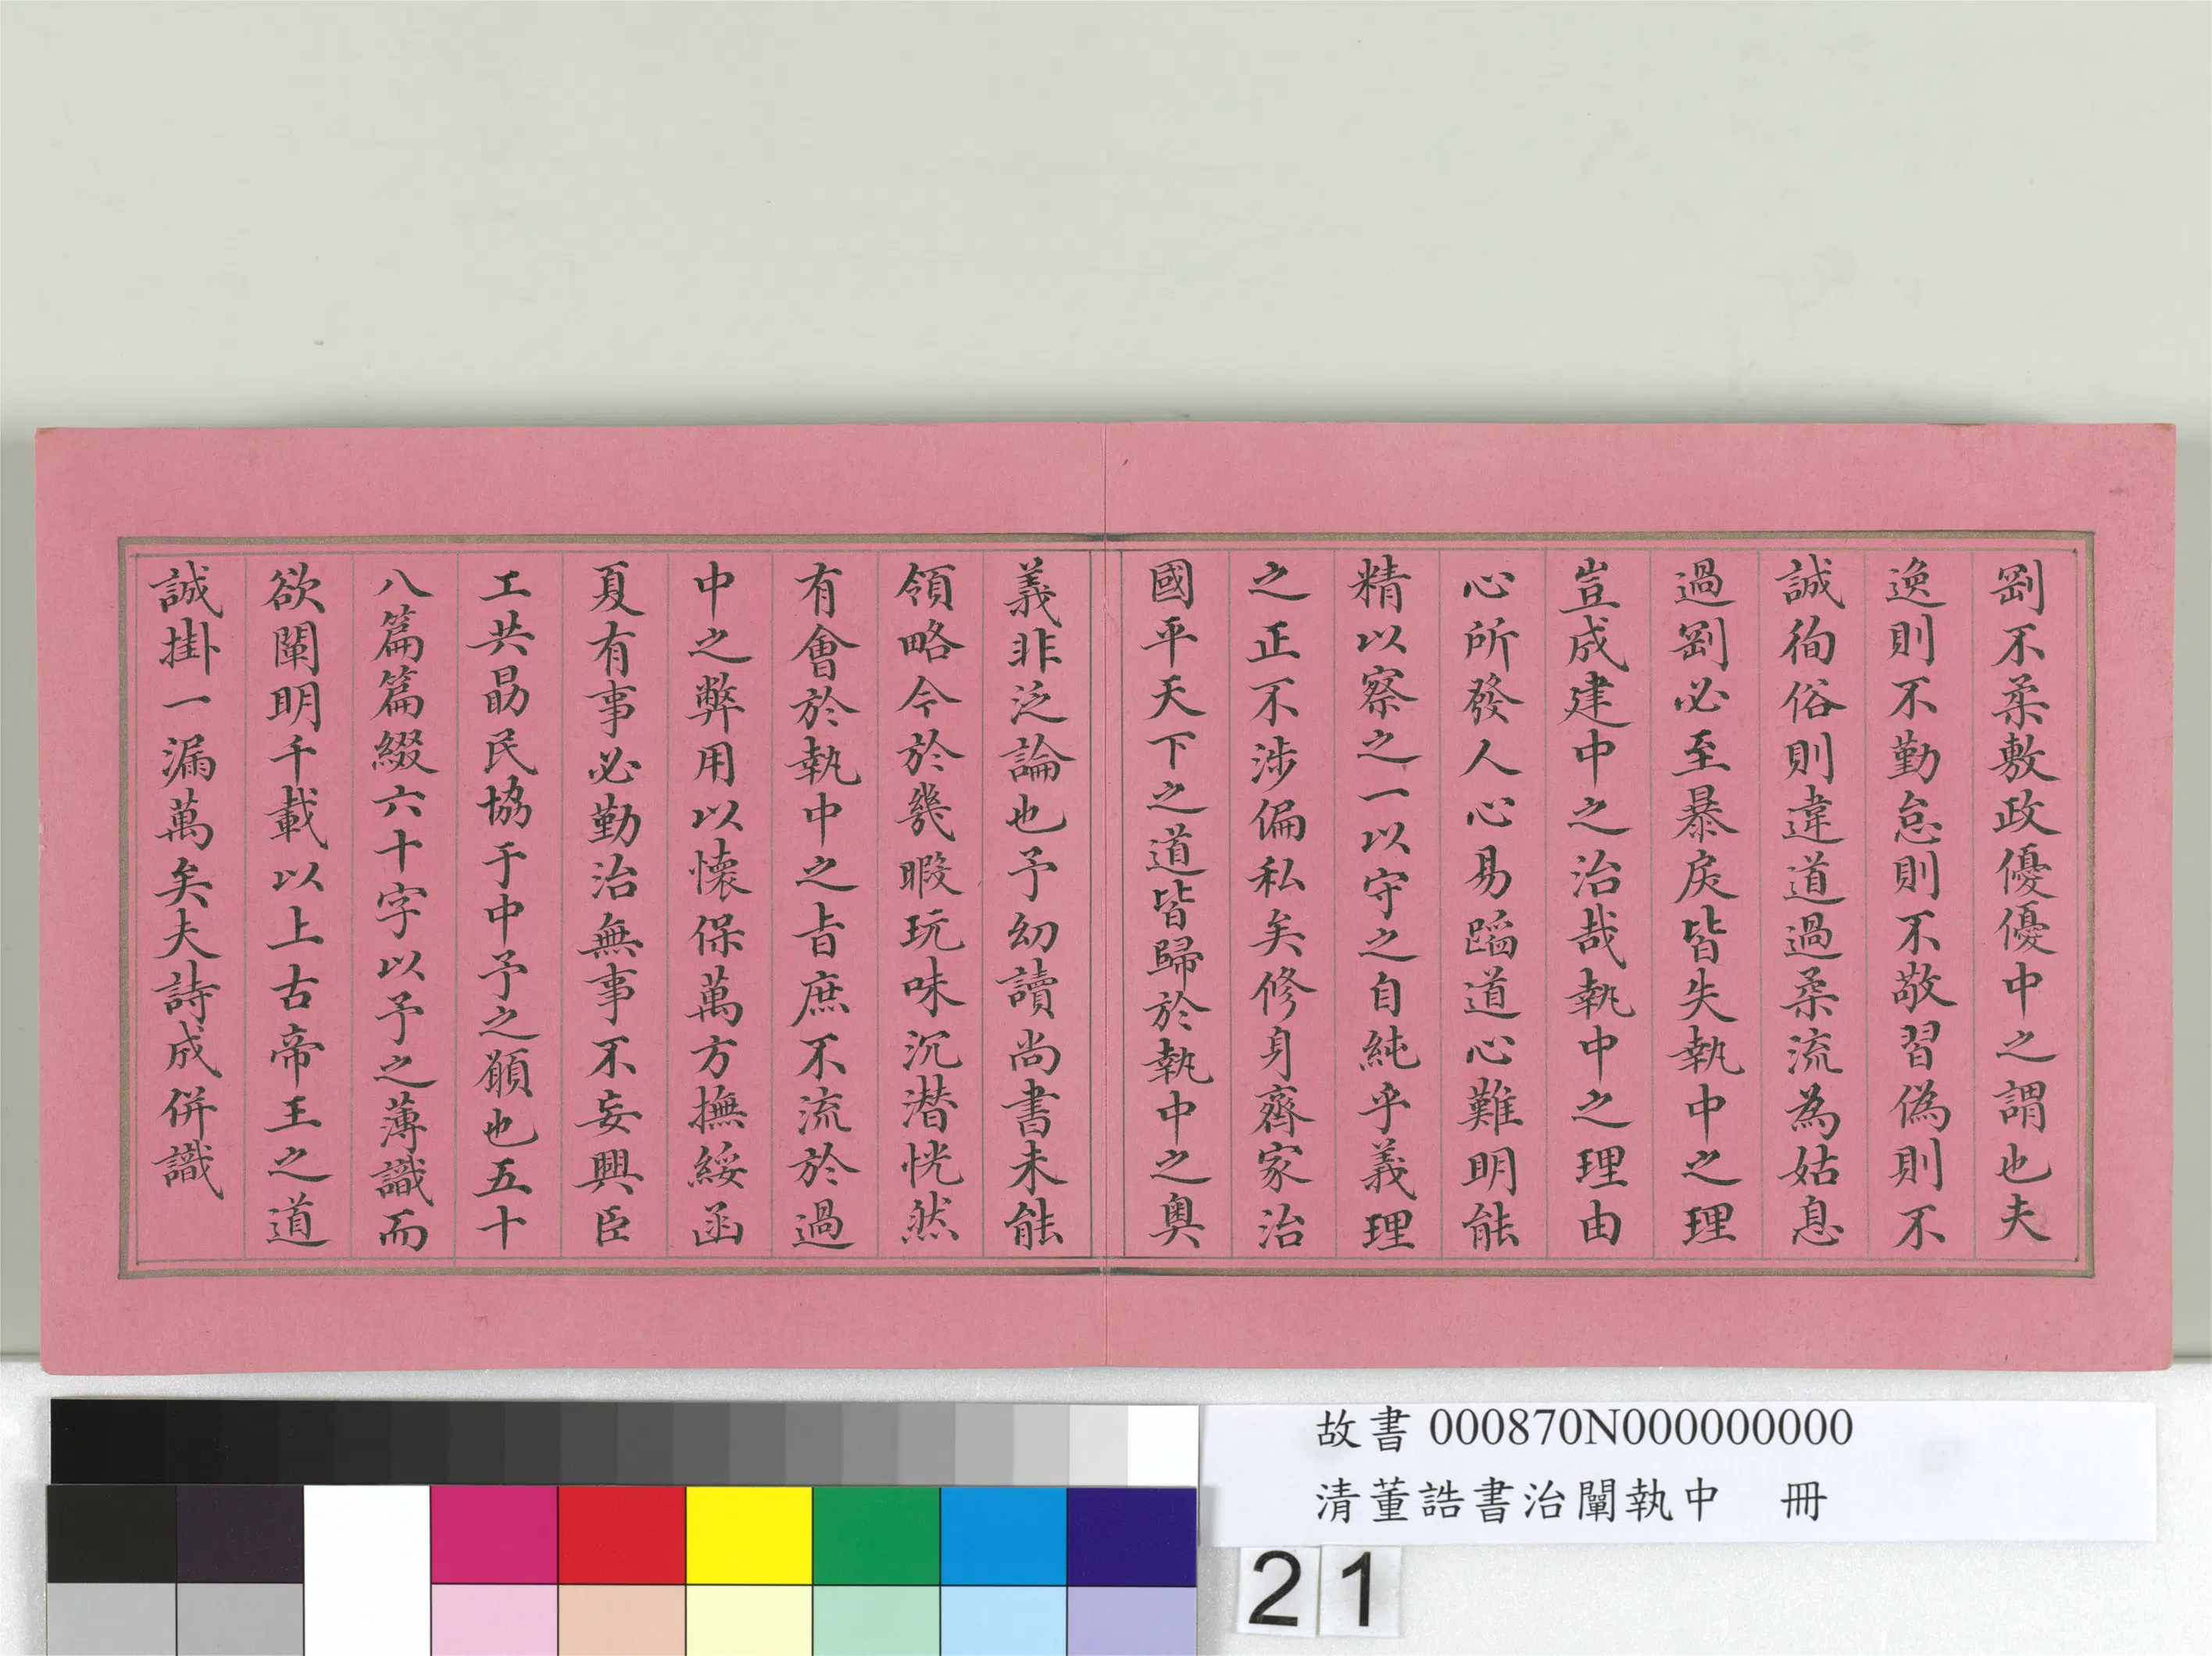 剛不柔敷政優優中之謂也夫
逸則不勤怠則不敬習偽則不
誠徇俗則違道過柔流為姑息
過剛必至暴戾皆失執中之理
豈成建中之治哉執中之理由
心所發人心易蹈道心難明能
精以察之一以守之自純乎義理
之正不涉偏私矣修身齊家治
國平天下之道皆歸於執中之奧
義非泛論也予幼讀尚書未能
領略今於幾暇玩味沉潜恍然
有會於執中之旨庶不流於過
中之弊用以懷保萬方撫綏函
夏有事必勤治無事不妄興臣
工共勗民協于中予之願也五十
八篇篇綴六十字以予之薄識而
欲闡明千載以上古帝王之道
誠掛一漏萬矣夫詩成併識
故書 000870N000000000
清董誥書治闡執中 冊
21